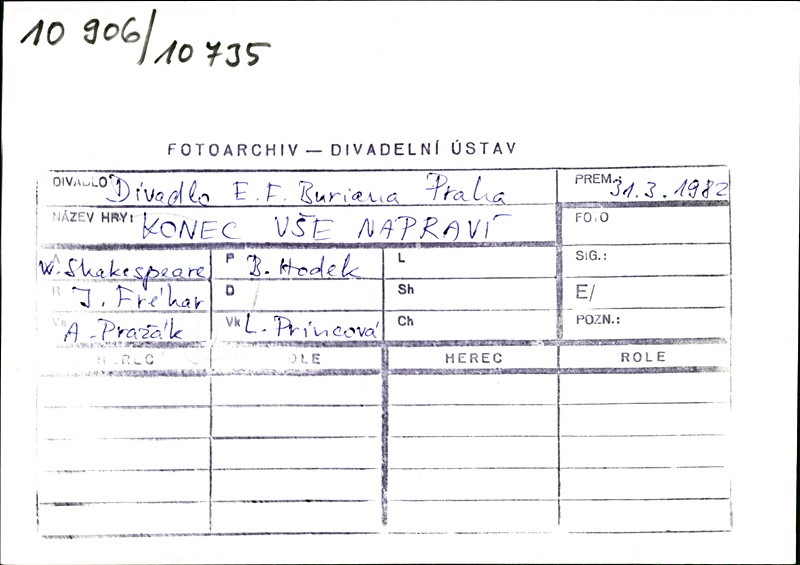 10 906/10 735
FOTOARCHIV — DIVADELNÍ ÚSTAV
DIVADLO: Divadlo E. F. Buriana Praha
PREM.: 31.3.1982
NÁZEV HRY: KONEC VŠE NAPRAVÍ
FOTO
A W. Shakespeare P B. Hodek L SIG.:
R J. Fréhar D Sh E/
Vs A. Pražák Vk L. Princová Ch POZN.:
HEREC ROLE HEREC ROLE